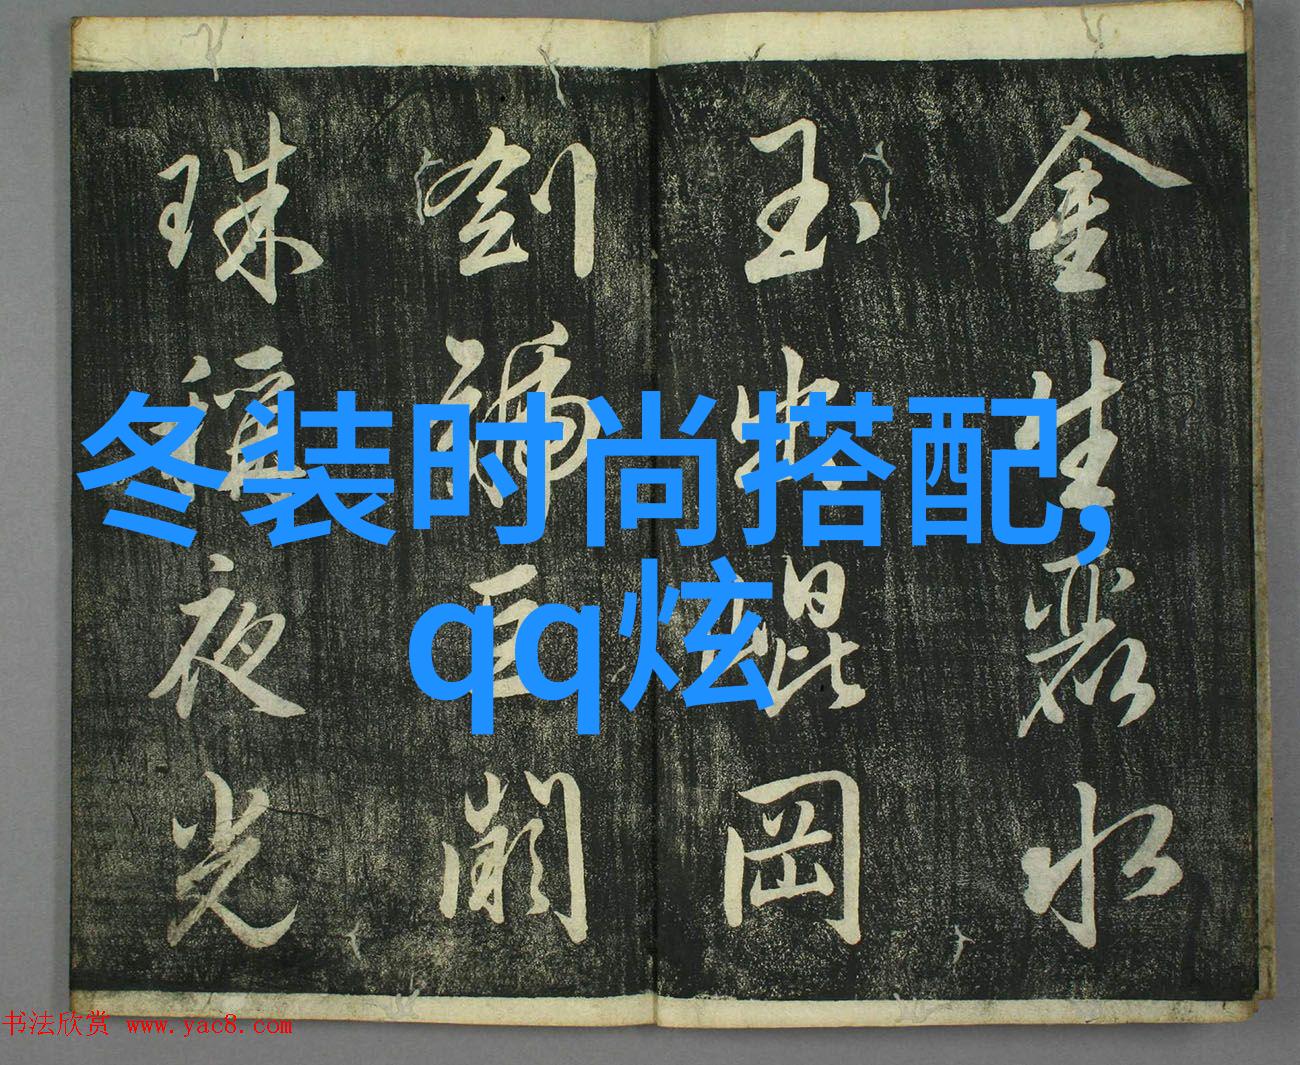 金生麗水
玉出崐岡
劍號巨闕
珠稱夜光
冬装时尚搭配,
qq炫
书法欣赏 www.yac8.com